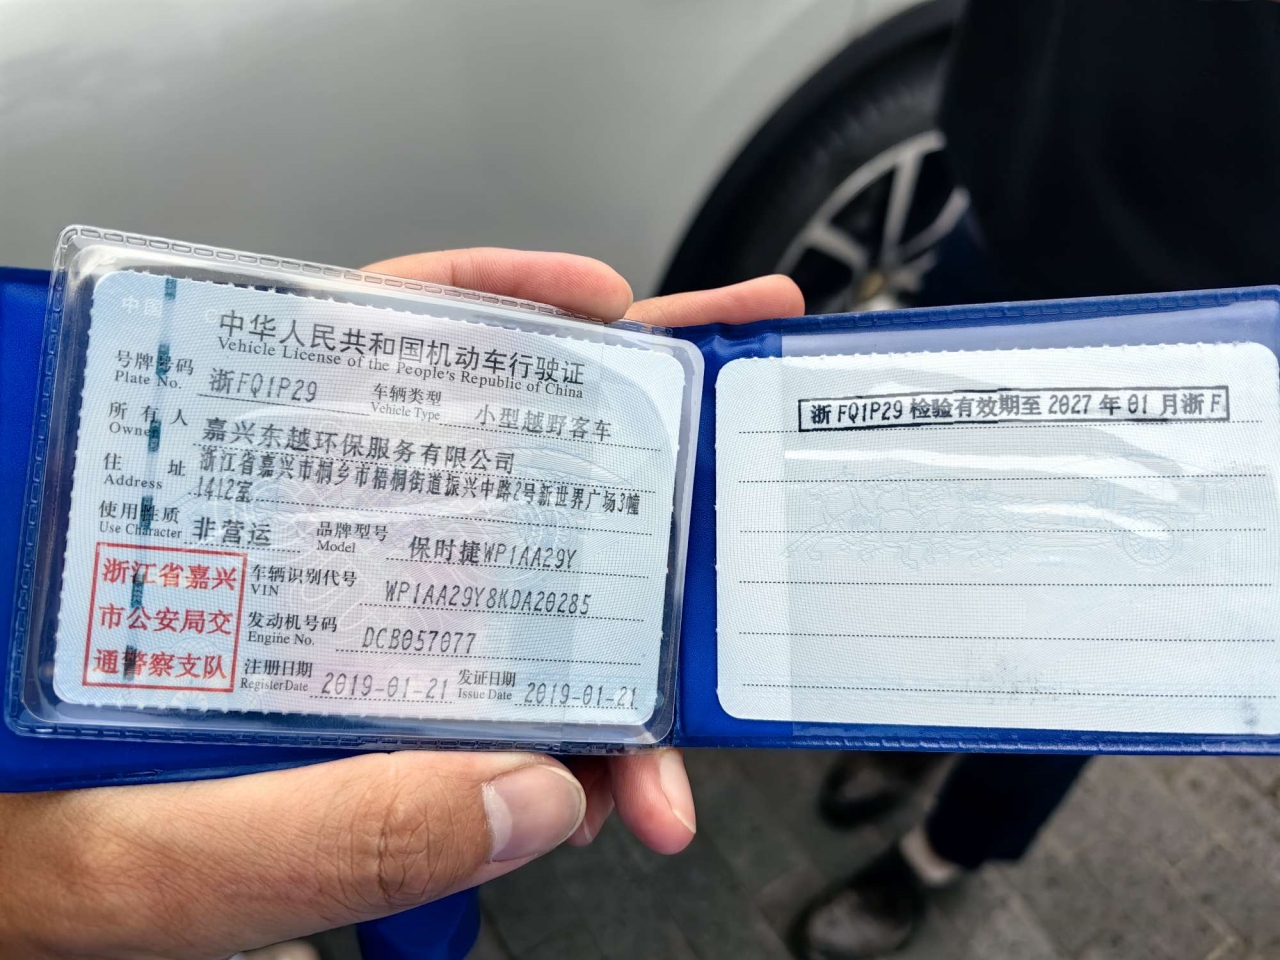 中国
中华人民共和国机动车行驶证
Vehicle License of the People's Republic of China
号牌号码 浙FQ1P29 车辆类型 小型越野客车
Plate No. Vehicle Type
所有人 嘉兴东越环保服务有限公司
Owner
住址 浙江省嘉兴市桐乡市梧桐街道振兴中路2号新世界广场3幢
Address 1412室
使用性质 非营运 品牌型号 保时捷WP1AA29Y
Use Character Model
浙江省嘉兴
市公安局交
通警察支队
车辆识别代号 WP1AA29Y8KDA20285
VIN
发动机号码 DCB057077
Engine No.
注册日期 2019-01-21 发证日期 2019-01-21
Register Date Issue Date
浙FQ1P29检验有效期至2027年01月浙F